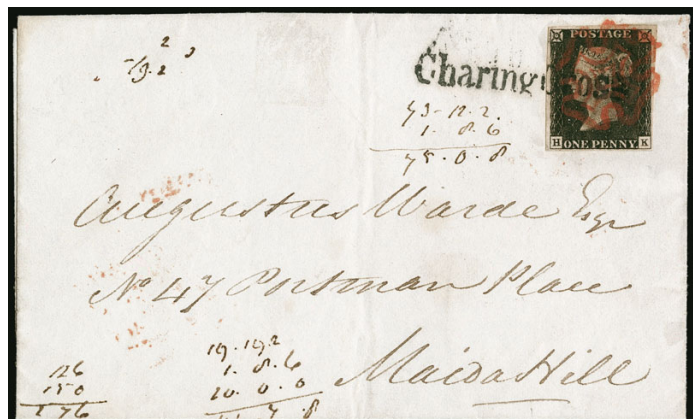 Charing Cross
POSTAGE
H ONE PENNY K
73-12.2.
1.8.6
75.0.8
Augustus Warde Esqr
No 47 Portman Place
Maida Hill
19.19.2
1.8.6
20.0.0
126
150
276